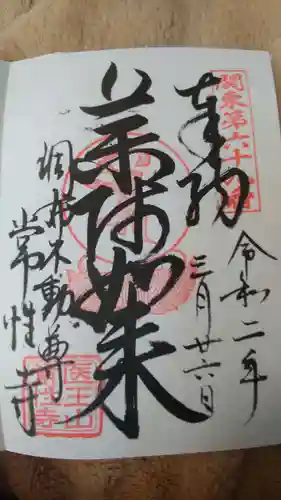 奉納
関東第六十八番
令和二年
三月廿六日
薬師如来
調布不動尊
常性寺
医王山
常性寺